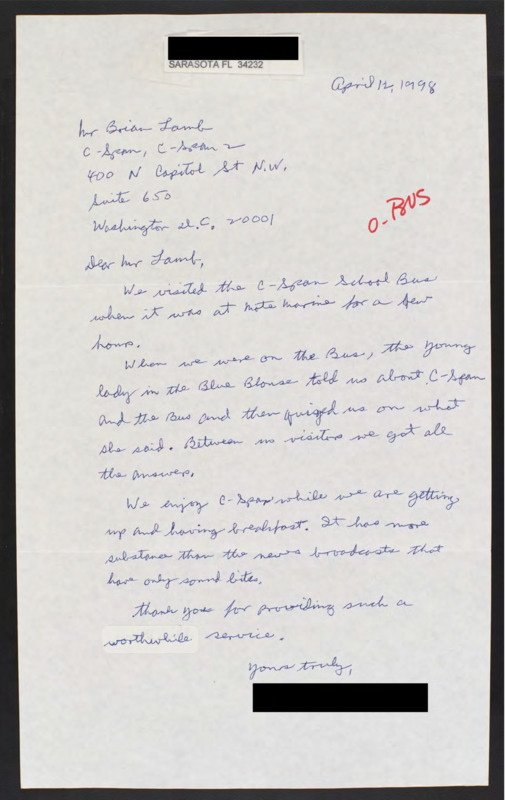 SARASOTA FL 34232
April 12, 1998
Mr Brian Lamb
C-Span, C-Span 2
400 N Capitol St N.W.
Suite 650
Washington D.C. 20001
O-BUS
Dear Mr Lamb,
We visited the C-Span School Bus
when it was at Mote Marine for a few
hours.
When we were on the Bus, the young
lady in the Blue Blouse told us about C-Span
and the Bus and then quized us on what
she said. Between us visitors we got all
the answers.
We enjoy C-Span while we are getting
up and having breakfast. It has more
substance than the news broadcasts that
have only sound bites.
Thank you for providing such a
worthwhile service.
Yours truly,